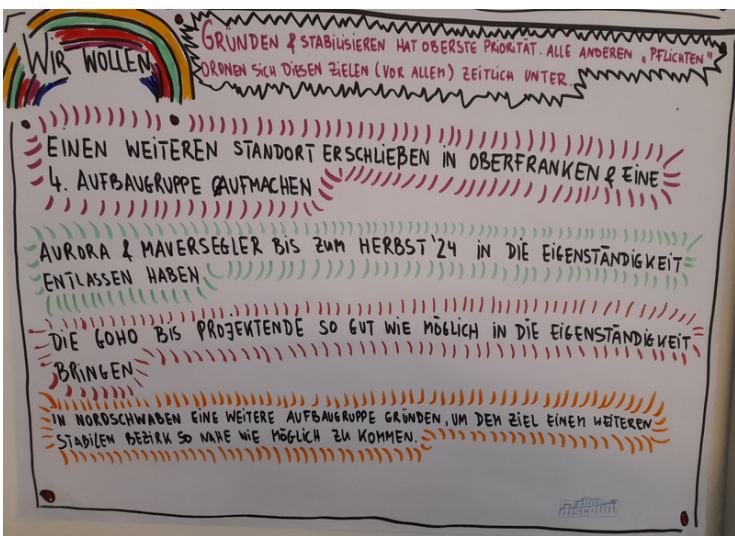 WIR WOLLEN
GRÜNDEN & STABILISIEREN HAT OBERSTE PRIORITÄT. ALLE ANDEREN „PFLICHTEN"
ORDNEN SICH DIESEN ZIELEN (VOR ALLEM) ZEITLICH UNTER.
EINEN WEITEREN STANDORT ERSCHLIEßEN IN OBERFRANKEN & EINE
4. AUFBAUGRUPPE AUFMACHEN
AURORA & MAUERSEGLER BIS ZUM HERBST '24 IN DIE EIGENSTÄNDIGKEIT
ENTLASSEN HABEN
DIE GOHO BIS PROJEKTENDE SO GUT WIE MÖGLICH IN DIE EIGENSTÄNDIGKEIT
BRINGEN
IN NORDSCHWABEN EINE WEITERE AUFBAUGRUPPE GRÜNDEN, UM DEM ZIEL EINEM WEITEREN
STABILEN BEZIRK SO NAHE WIE MÖGLICH ZU KOMMEN.
discount